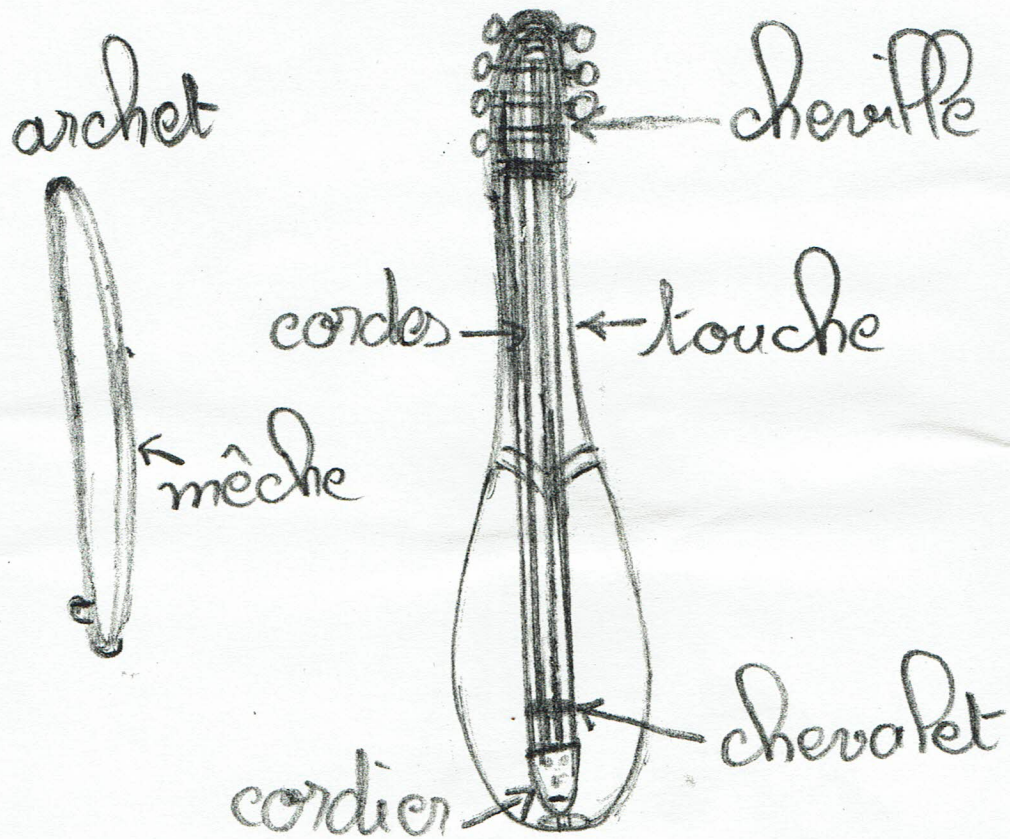 archet
cheville
cordes
touche
mêche
chevalet
cordier